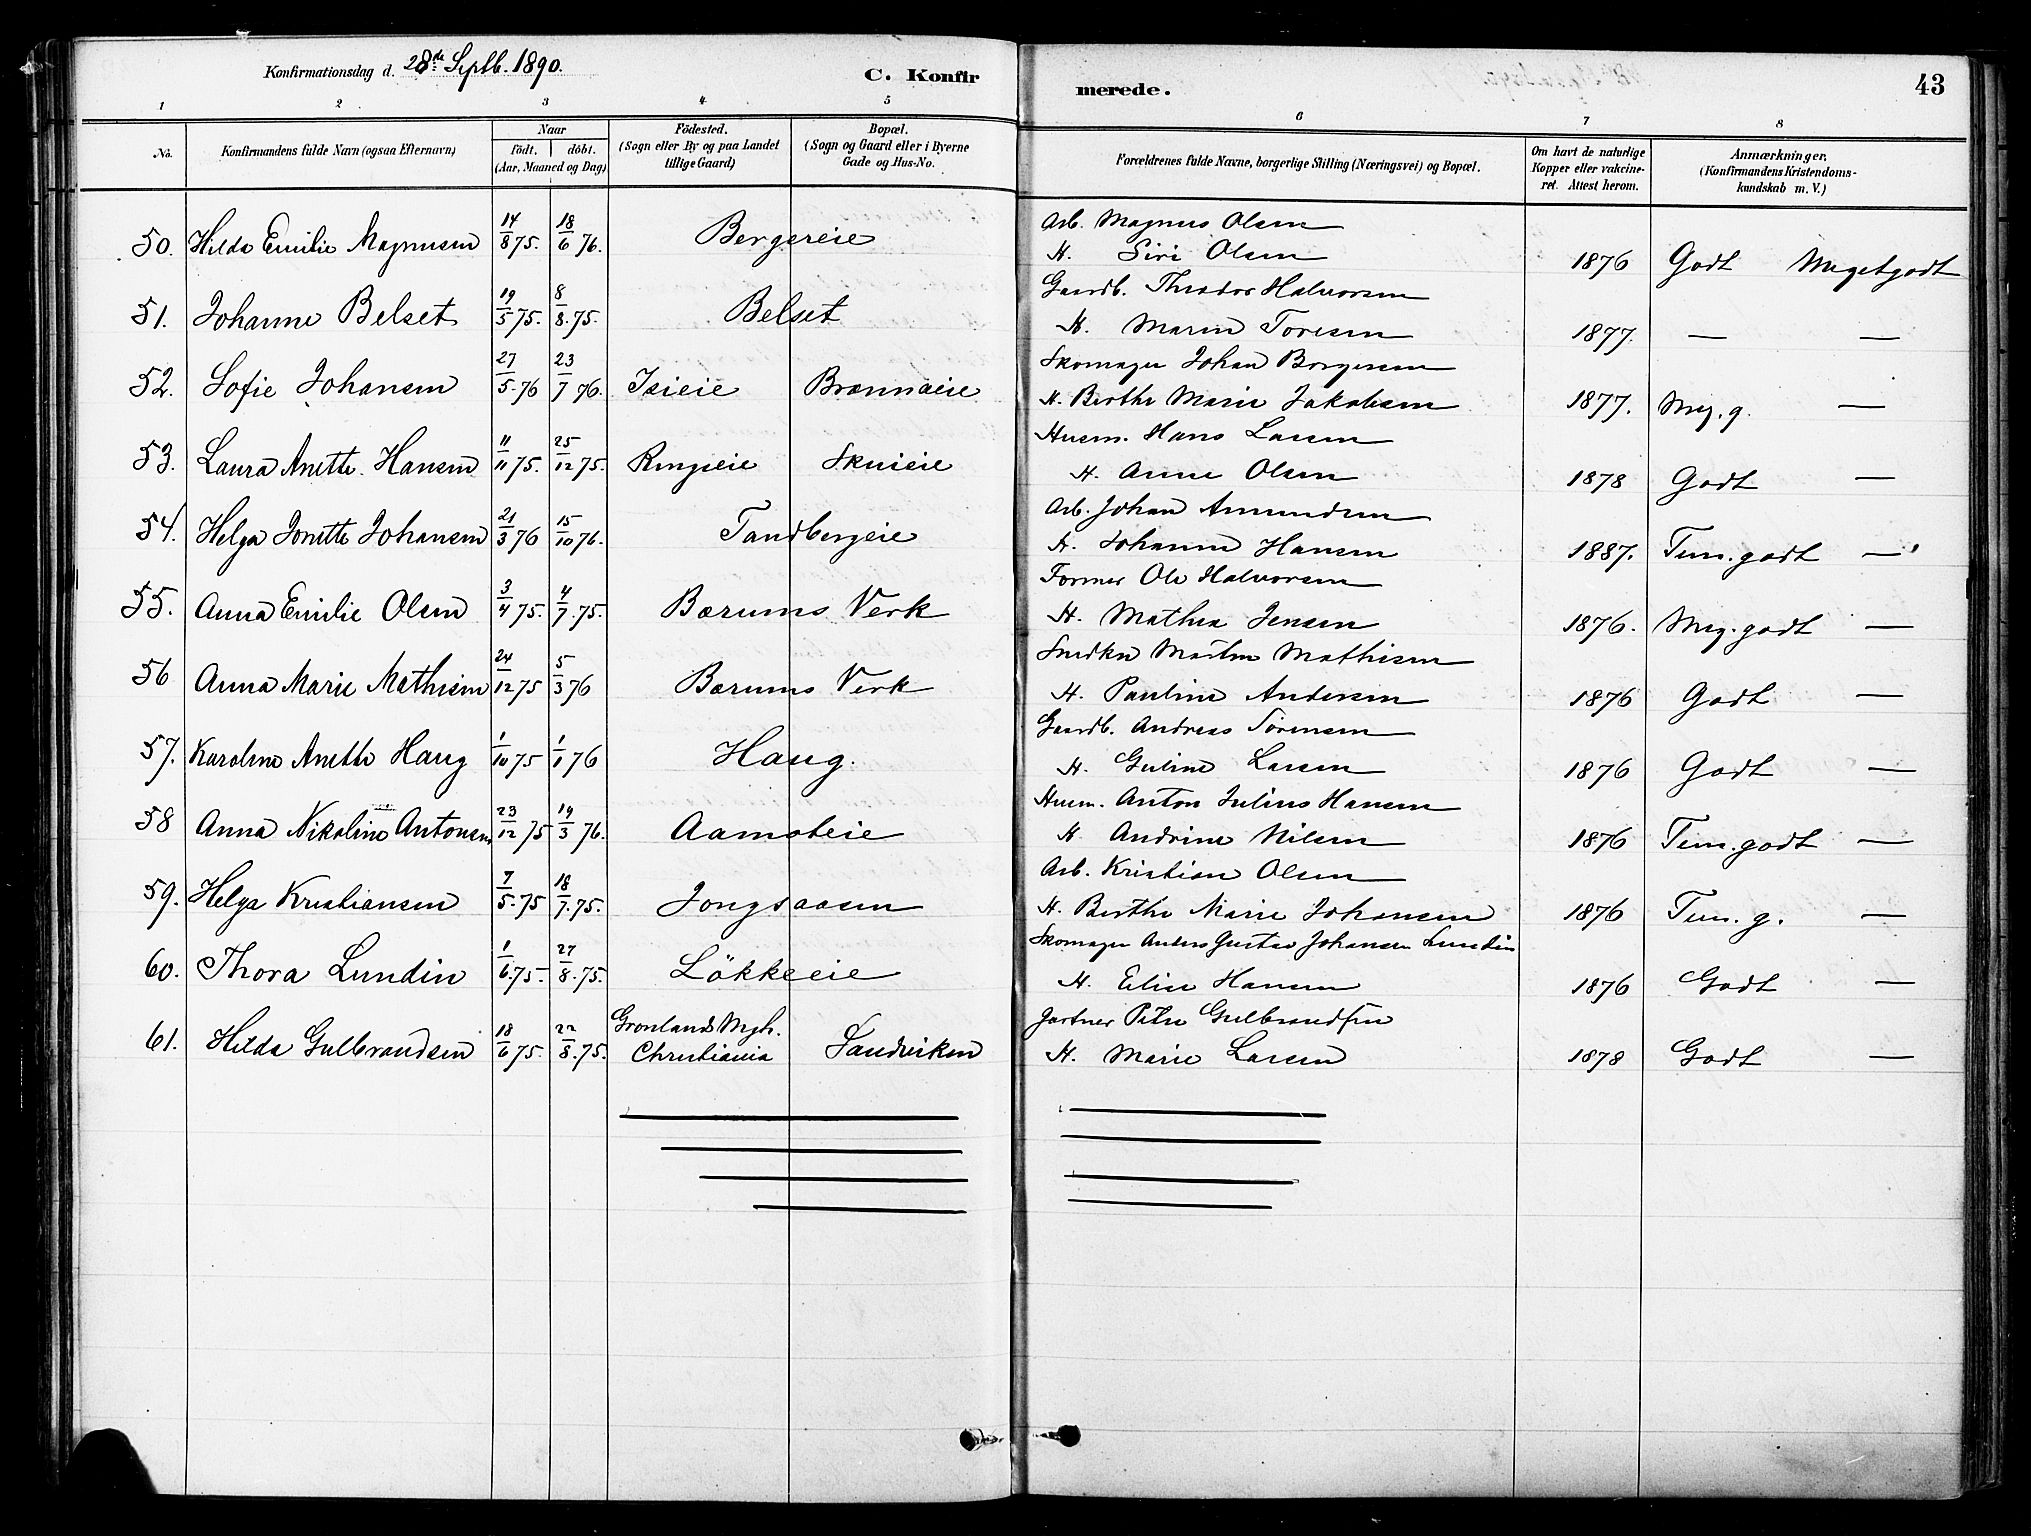 Konfirmationsdag d. 28de Septb. 1890.
C. Konfirmerede.
43
1 2 3 4 5 6 7 8
No.
Konfirmandens fulde Navn (ogsaa Efternavn)
Naar
födt. döbt.
(Aar, Maaned og Dag)
Födested.
(Sogn eller By og paa Landet
tillige Gaard)
Bopæl.
(Sogn og Gaard eller i Byerne
Gade og Hus-No.
Forældrenes fulde Navne, borgerlige Stilling (Næringsvei) og Bopæl.
Om havt de naturlige
Kopper eller vakcine-
ret. Attest herom.
Anmærkninger.
(Konfirmandens Kristendoms-
kundskab m. V.)
Arb. Magnus Olsen
50. Hilda Emilie Magnusen 14/8 75. 18/6 76. Bergereie H. Siri Olsen 1876 Godt Megetgodt
Gaardb. Theodor Halvorsen
51. Johanne Belset 19/5 75. 8/8. 75. Belset H. Maren Toresen 1877. — —
Skomager Johan Borgersen
52. Sofie Johansen 27/5 76 23/7 76. Isieie Brænnaeie H. Berthe Marie Jakobsen 1877. Meg. g. —
Husm. Hans Larsen
53. Laura Anette Hansen 11/11 75. 25/12 75. Ringieie Skuieie H. Anne Olsen 1878 Godt —
Arb. Johan Amundsen
54. Helga Jonette Johansen 21/3 76 15/10 76. Tandbergeie H. Johanne Hansen 1887. Tem. godt —
Former Ole Halvorsen
55. Anna Emilie Olsen 3/4 75. 4/7. 75. Bærums Verk H. Mathea Jensen 1876. Meg. godt —
Snedker Martin Mathisen
56 Anna Marie Mathisen 24/12 75 5/3 76 Bærums Verk H. Pauline Andersen 1876 Godt —
Gaardb. Andreas Sørensen
57. Karoline Anette Haug 1/10 75 1/1 76 Haug. H. Guline Larsen 1876 Godt —
Husm. Anton Julius Hansen
58 Anna Nikoline Antonsen 23/12 75 19/3 76. Aamoteie H. Andrine Nilsen 1876 Tem. godt —
Arb. Kristian Olsen
59. Helga Kristiansen 7/5. 75 18/7. 75. Jongsaasen H. Berthe Marie Johansen 1876 Tem. g. —
Skomager Anders Gustav Johansen Lundin
60. Thora Lundin 1/6. 75. 27/8. 75. Lökkeeie H. Elise Hansen 1876 Godt —
Grønlands Mgh. Gartner Peter Gulbrandsen
61. Hilda Gulbrandsen 18/6 75. 22/8. 75. Christiania Sandviken H. Marie Larsen 1878 Godt —